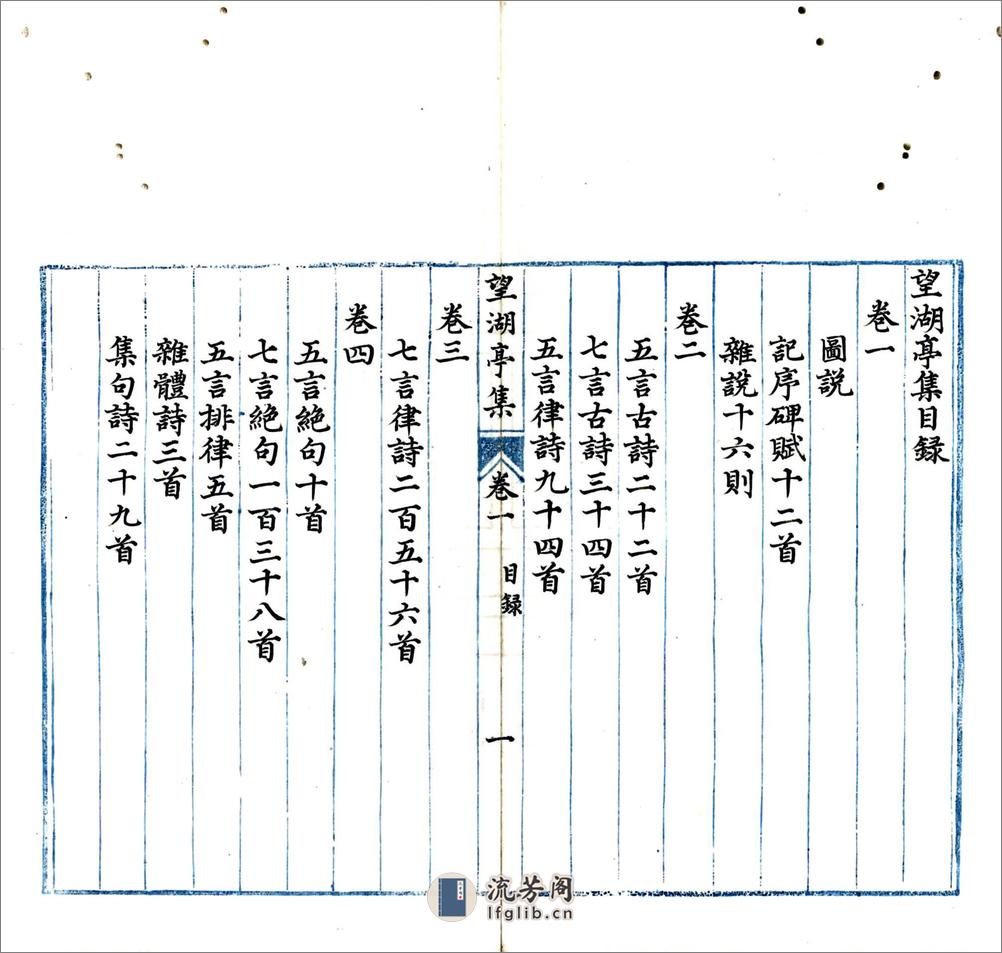 望湖亭集目録
卷一
圖説
記序碑賦十二首
雜説十六則
卷二
五言古詩二十二首
七言古詩三十四首
五言律詩九十四首
望湖亭集
卷一
目録
一
卷三
七言律詩二百五十六首
卷四
五言絶句十首
七言絶句一百三十八首
五言排律五首
雜體詩三首
集句詩二十九首
流芳阁
lfglib.cn